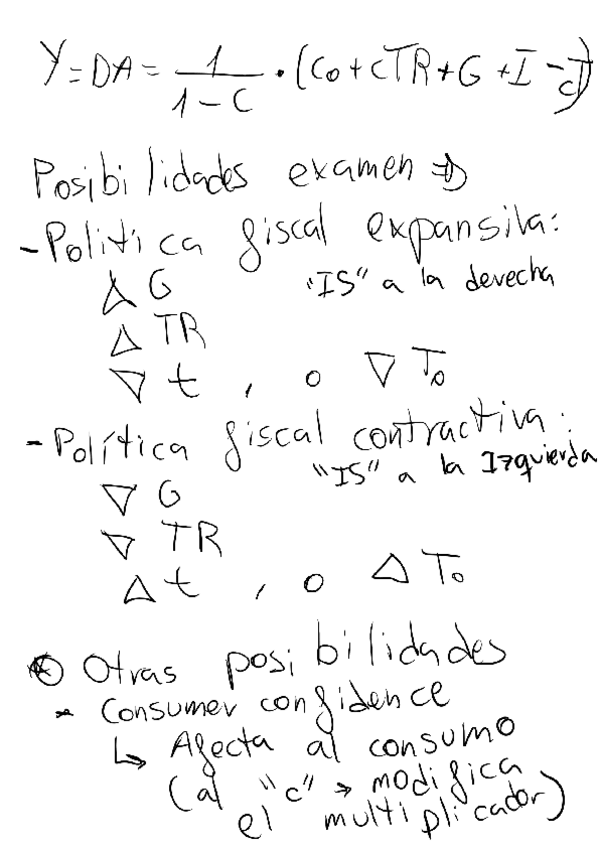 Y=DA= 1/(1-C) · (Co+cTR+G+I-cT)
Posibilidades examen ⇒
-Política fiscal expansiva:
△ G "IS" a la derecha
△ TR
▽ t , o ▽ To
-Política fiscal contractiva:
"IS" a la Izquierda
▽ G
▽ TR
△ t , o △ To
Otras posibilidades
- Consumer confidence
↳ Afecta al consumo
(al "c" → modifica
el multiplicador)